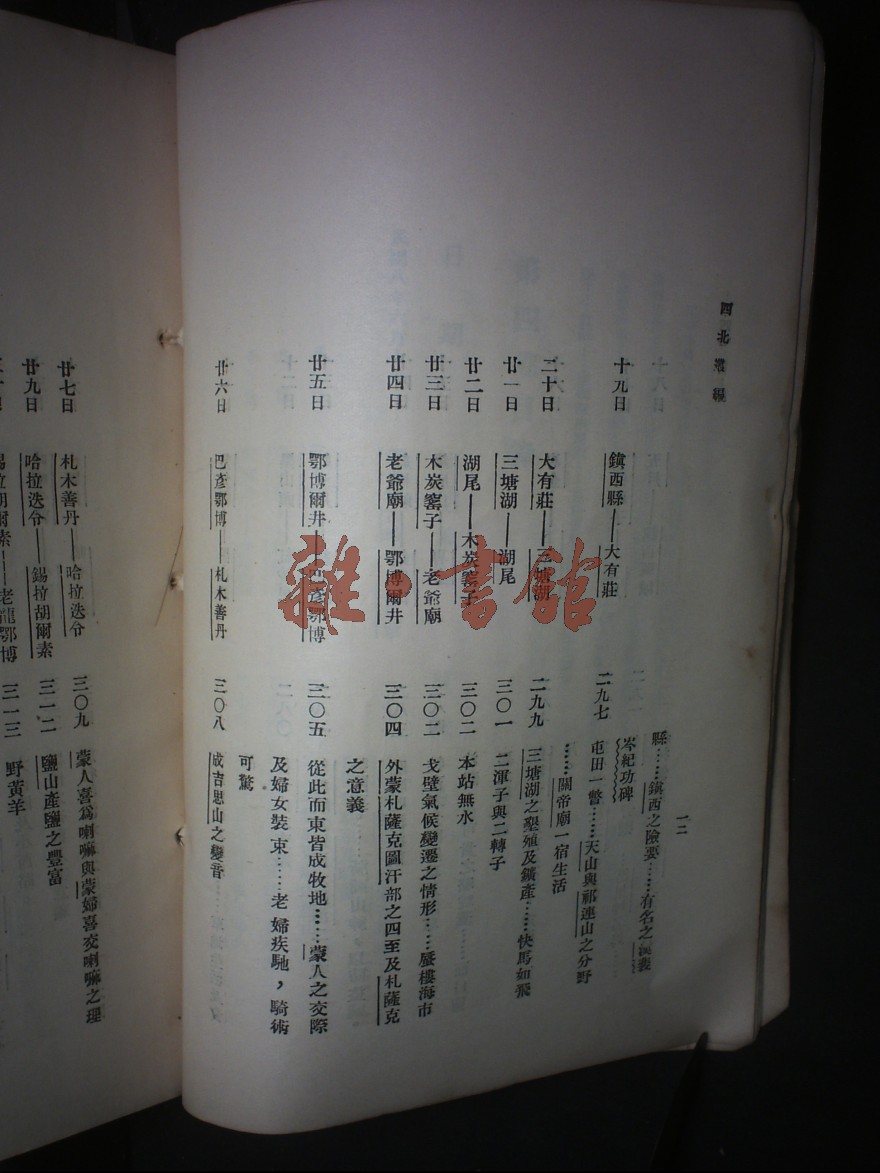 西北叢編
一二
縣……鎮西之險要……有名之漢裴
岑紀功碑
十九日 鎮西縣——大有莊 二九七 屯田一瞥……天山與祁連山之分野
……關帝廟一宿生活
二十日 大有莊——三塘湖 二九九 三塘湖之墾殖及鑛產……快馬如飛
廿一日 三塘湖——湖尾 三〇一 二渾子與二轉子
廿二日 湖尾——木炭窰子 三〇二 本站無水
廿三日 木炭窰子——老爺廟 三〇二 戈壁氣候變遷之情形……蜃樓海市
廿四日 老爺廟——鄂博爾井 三〇四 外蒙札薩克圖汗部之四至及札薩克
之意義
廿五日 鄂博爾井——巴彥鄂博 三〇五 從此而東皆成牧地……蒙人之交際
及婦女裝束……老婦疾馳，騎術
可驚
廿六日 巴彥鄂博——札木善丹 三〇八 成吉思山之變音
廿七日 札木善丹——哈拉迭兮 三〇九 蒙人喜爲喇嘛與蒙婦喜交喇嘛之理
廿九日 哈拉迭兮——錫拉胡爾素 三一二 鹽山產鹽之豐富
錫拉胡爾素——老龍鄂博 三一三 野黃羊
雜·書館